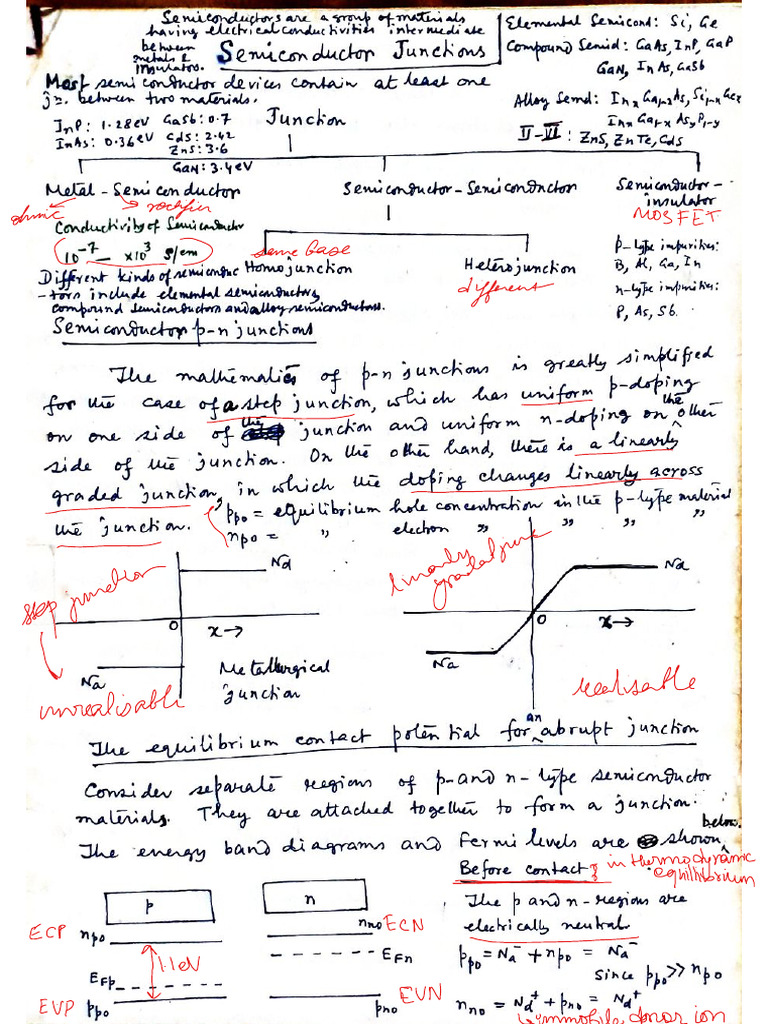 Semiconductors are a group of materials
having electrical conductivities intermediate
between
metals &
insulators.
Semiconductor Junctions
Elemental Semicond: Si, Ge
Compound Semid: GaAs, InP, GaP
GaN, InAs, GaSb
Alloy Semd: InxGa1-xAs, Si1-xGex
InxGa1-xAsyP1-y
II-VI: ZnS, ZnTe, CdS
Most semiconductor devices contain at least one
jn. between two materials.
InP: 1.28eV GaSb: 0.7
InAs: 0.36eV CdS: 2.42
ZnS: 3.6
GaN: 3.4eV
Junction
Metal-Semiconductor
Semiconductor-Semiconductor
Semiconductor-
insulator
MOSFET
ohmic
rectifier
Conductivity of Semiconductor
10^-7 — ×10^3 S/cm
same base
Homojunction
Heterojunction
different
p-type impurities:
B, Al, Ga, In
n-type impurities:
P, As, Sb.
Different kinds of semiconduc
-tors include elemental semiconductors,
compound semiconductors and alloy semiconductors.
Semiconductor p-n junctions
The mathematics of p-n junctions is greatly simplified
for the case of a step junction, which has uniform p-doping
on one side of the junction and uniform n-doping on the other
side of the junction. On the other hand, there is a linearly
graded junction, in which the doping changes linearly across
the junction.
ppo = equilibrium hole concentration in the p-type material
npo = " electron " " " "
step junction
Nd
0
x→
Na
Metallurgical
junction
unrealisable
linearly
graded junc
Nd
0
x→
Na
realisable
The equilibrium contact potential for an abrupt junction
Consider separate regions of p- and n-type semiconductor
materials. They are attached together to form a junction.
The energy band diagrams and Fermi levels are shown below.
Before contact } in thermodynamic
equilibrium
p
n
The p and n-regions are
electrically neutral.
ECP npo
nno ECN
1.1eV
EFn
EFp
EVP ppo
pno EVN
ppo = Na^- + npo = Na^-
since ppo >> npo
nno = Nd^+ + pno = Nd^+
immobile donor ion